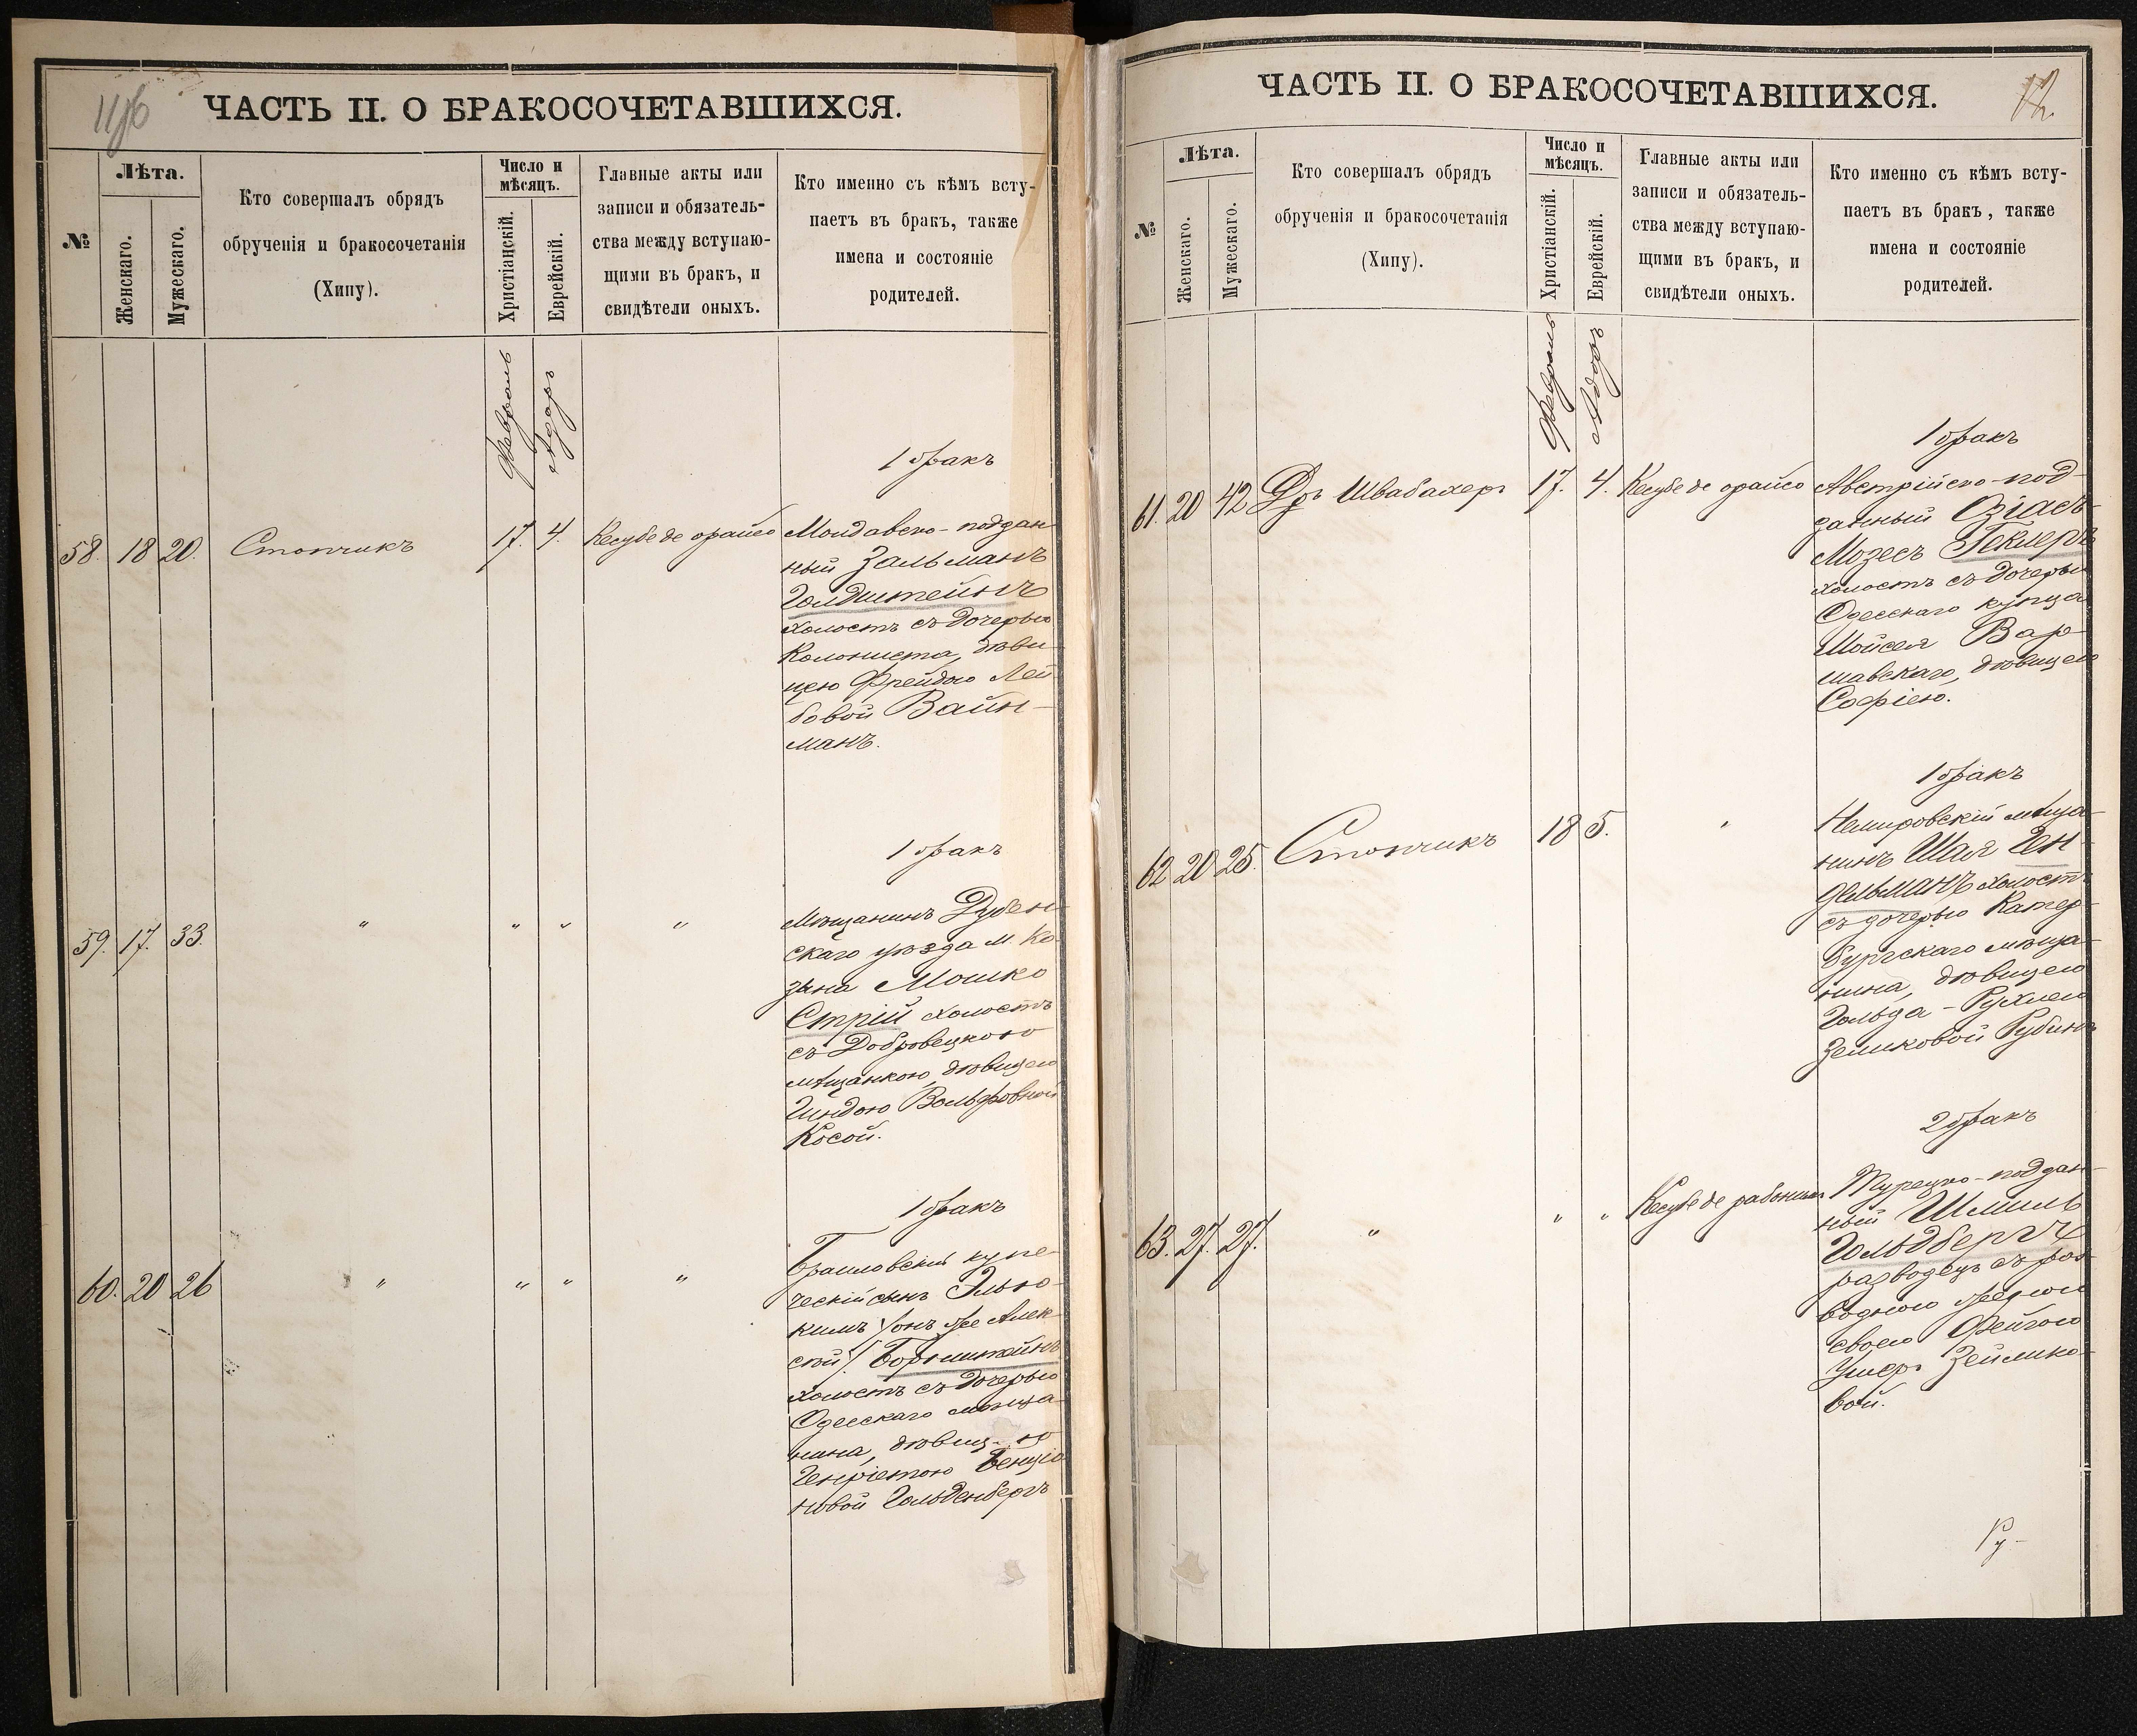 11об
ЧАСТЬ II. О БРАКОСОЧЕТАВШИХСЯ.
№
Лѣта.
Женскаго.
Мужескаго.
Кто совершалъ обрядъ
обрученія и бракосочетанія
(Хипу).
Число и
мѣсяцъ.
Христіанскій.
Еврейскій.
Главные акты или
записи и обязатель-
ства между вступаю-
щими въ бракъ, и
свидѣтели оныхъ.
Кто именно съ кѣмъ всту-
паетъ въ бракъ, также
имена и состояніе
родителей.
Февраль
Адаръ
1 бракъ
58. 18 20. Стопчикъ 17. 4. Кесубе де орайсо Молдавско-поддан
ный Зальманъ
Голдштейнъ
холостъ съ дочерью
Колониста, дѣви
цею Фрейдою Лей
бовой Вайн-
манъ.
1 бракъ
59. 17. 33. " " " " Мѣщанинъ Дубен-
скаго уѣзда м. Ко
зина Мошко
Стрій холостъ
съ Добровецкою
мѣщанкою, дѣвицею
Гиндою Вольфовной
Косой.
1 бракъ
60. 20 26 " " " " Браиловскій купе-
ческій сынъ Элью-
кимъ /онъ же Алек-
сѣй/ Борнштейнъ
холостъ съ дочерью
Одесскаго мѣща
нина, дѣвиц-ю
Генріетою Бенціо
новой Гольденбергъ
12
ЧАСТЬ II. О БРАКОСОЧЕТАВШИХСЯ.
№
Лѣта.
Женскаго.
Мужескаго.
Кто совершалъ обрядъ
обрученія и бракосочетанія
(Хипу).
Число и
мѣсяцъ.
Христіанскій.
Еврейскій.
Главные акты или
записи и обязатель-
ства между вступаю-
щими въ бракъ, и
свидѣтели оныхъ.
Кто именно съ кѣмъ всту-
паетъ въ бракъ, также
имена и состояніе
родителей.
Февраль
Адаръ
1 бракъ
61. 20 42 Дръ Швабахеръ 17. 4. Кесубе де орайсо Австрійско-под-
данный Озіасъ-
Мозесъ Геклеръ
холостъ съ дочерью
Одесскаго купца
Мойсея Вар-
шавскаго, дѣвицею
Софіею.
1 бракъ
62 20 25. Стопчикъ 18 5. " Немировскій мѣща-
нинъ Шая Ген-
дельманъ холостъ
съ дочерью Катер-
бургскаго мѣща-
нина, дѣвицею
Гольда-Рухлею
Зеликовой Рубинъ
2 бракъ
63. 27. 27. " " " Кесубе де рабонимъ Турецко-поддан-
ный Шмиль
Гольдбергъ
разводецъ съ раз-
водною женою
своею Фейгою
Умеръ Зейлико-
вой.